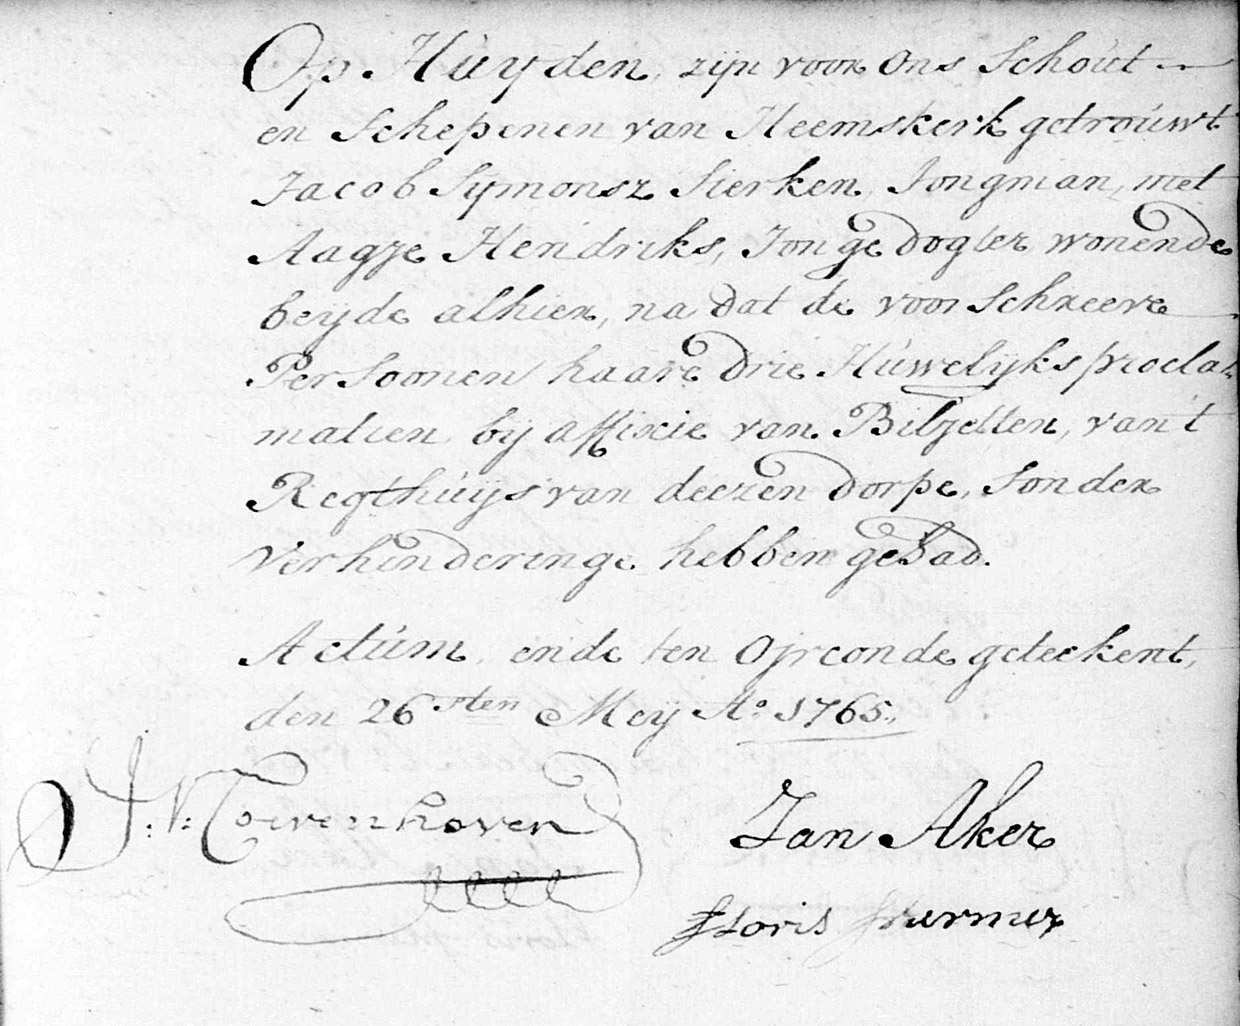 Op Húyden, zijn voor ons Schoút
en Schepenen van Heemskerk getroúwt
Jacob Sijmonsz Sierken, Jongman, met
Aagje Hendriks, Jonge dogter, wonende
beijde alhier, na dat de voor Schreeve
Persoonen haare drie Húwelijks procla-
matien bij affixie van Biljetten, van 't
Regthúijs van deezen dorpe, Sonder
Verhinderinge hebben gehad.
Actúm, ende ten Oirconde geteekent,
den 26sten Meij Ao. 1765.
J: V: Coevenhoven
Jan Aker
Floris